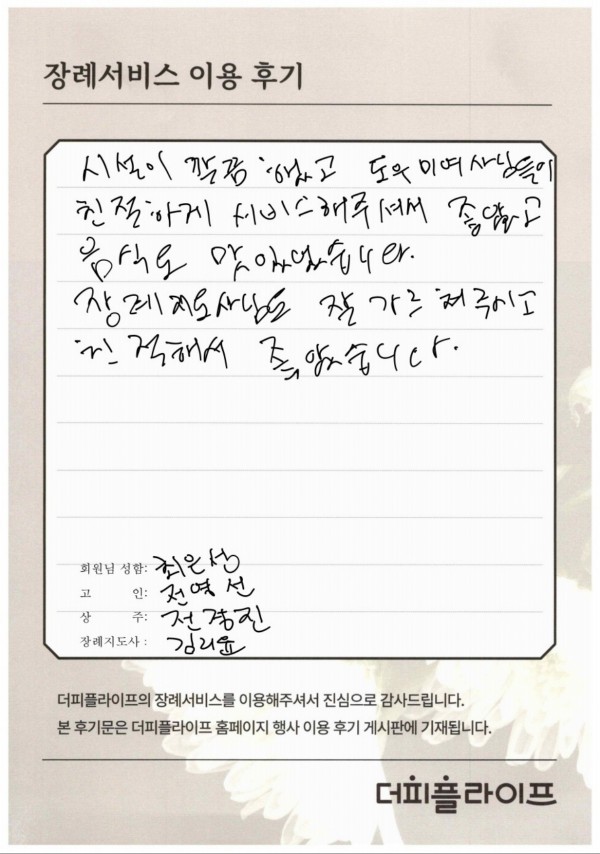 장례서비스 이용 후기
시설이 깔끔했고 도우미여사님들이
친절하게 서비스해주셔서 좋았고
음식도 맛있었습니다.
장례지도사님도 잘 가르쳐주시고
친절해서 좋았습니다.
회원님 성함: 최은성
고 인: 전영선
상 주: 전광진
장례지도사: 김리윤
더피플라이프의 장례서비스를 이용해주셔서 진심으로 감사드립니다.
본 후기문은 더피플라이프 홈페이지 행사 이용 후기 게시판에 기재됩니다.
더피플라이프